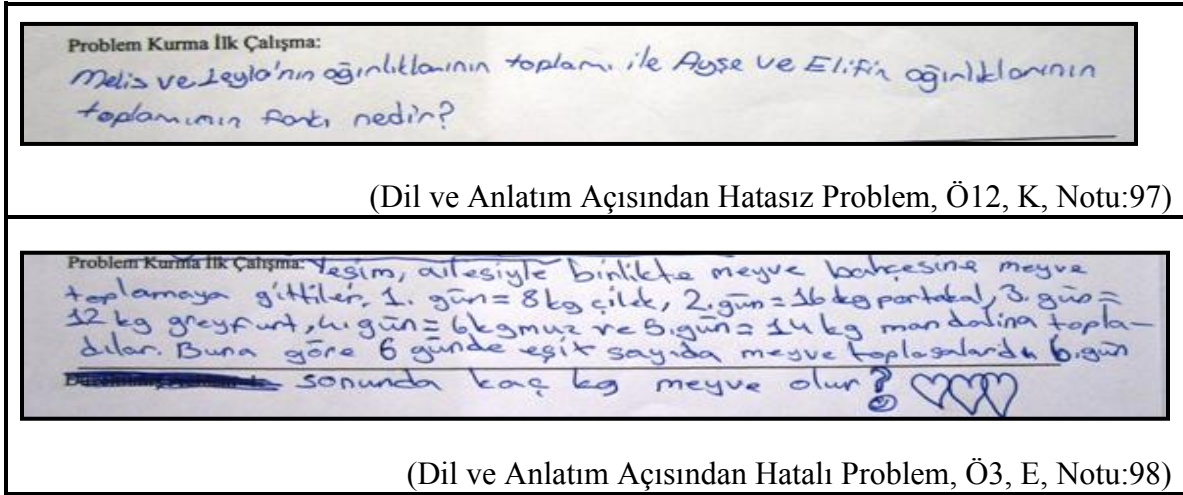 Problem Kurma İlk Çalışma:
Melis ve Leyla'nın ağırlıklarının toplamı ile Ayşe ve Elifin ağırlıklarının
toplamının farkı nedir?
(Dil ve Anlatım Açısından Hatasız Problem, Ö12, K, Notu:97)
Problem Kurma İlk Çalışma: Yeşim, ailesiyle birlikte meyve bahçesine meyve
toplamaya gittiler. 1. gün = 8 kg çilek, 2. gün = 16 kg portakal, 3. gün =
12 kg greyfurt, 4. gün = 6 kg muz ve 5. gün = 14 kg mandalina topla-
dılar. Buna göre 6 günde eşit sayıda meyve toplasalardı 6. gün
sonunda kaç kg meyve olur?
(Dil ve Anlatım Açısından Hatalı Problem, Ö3, E, Notu:98)